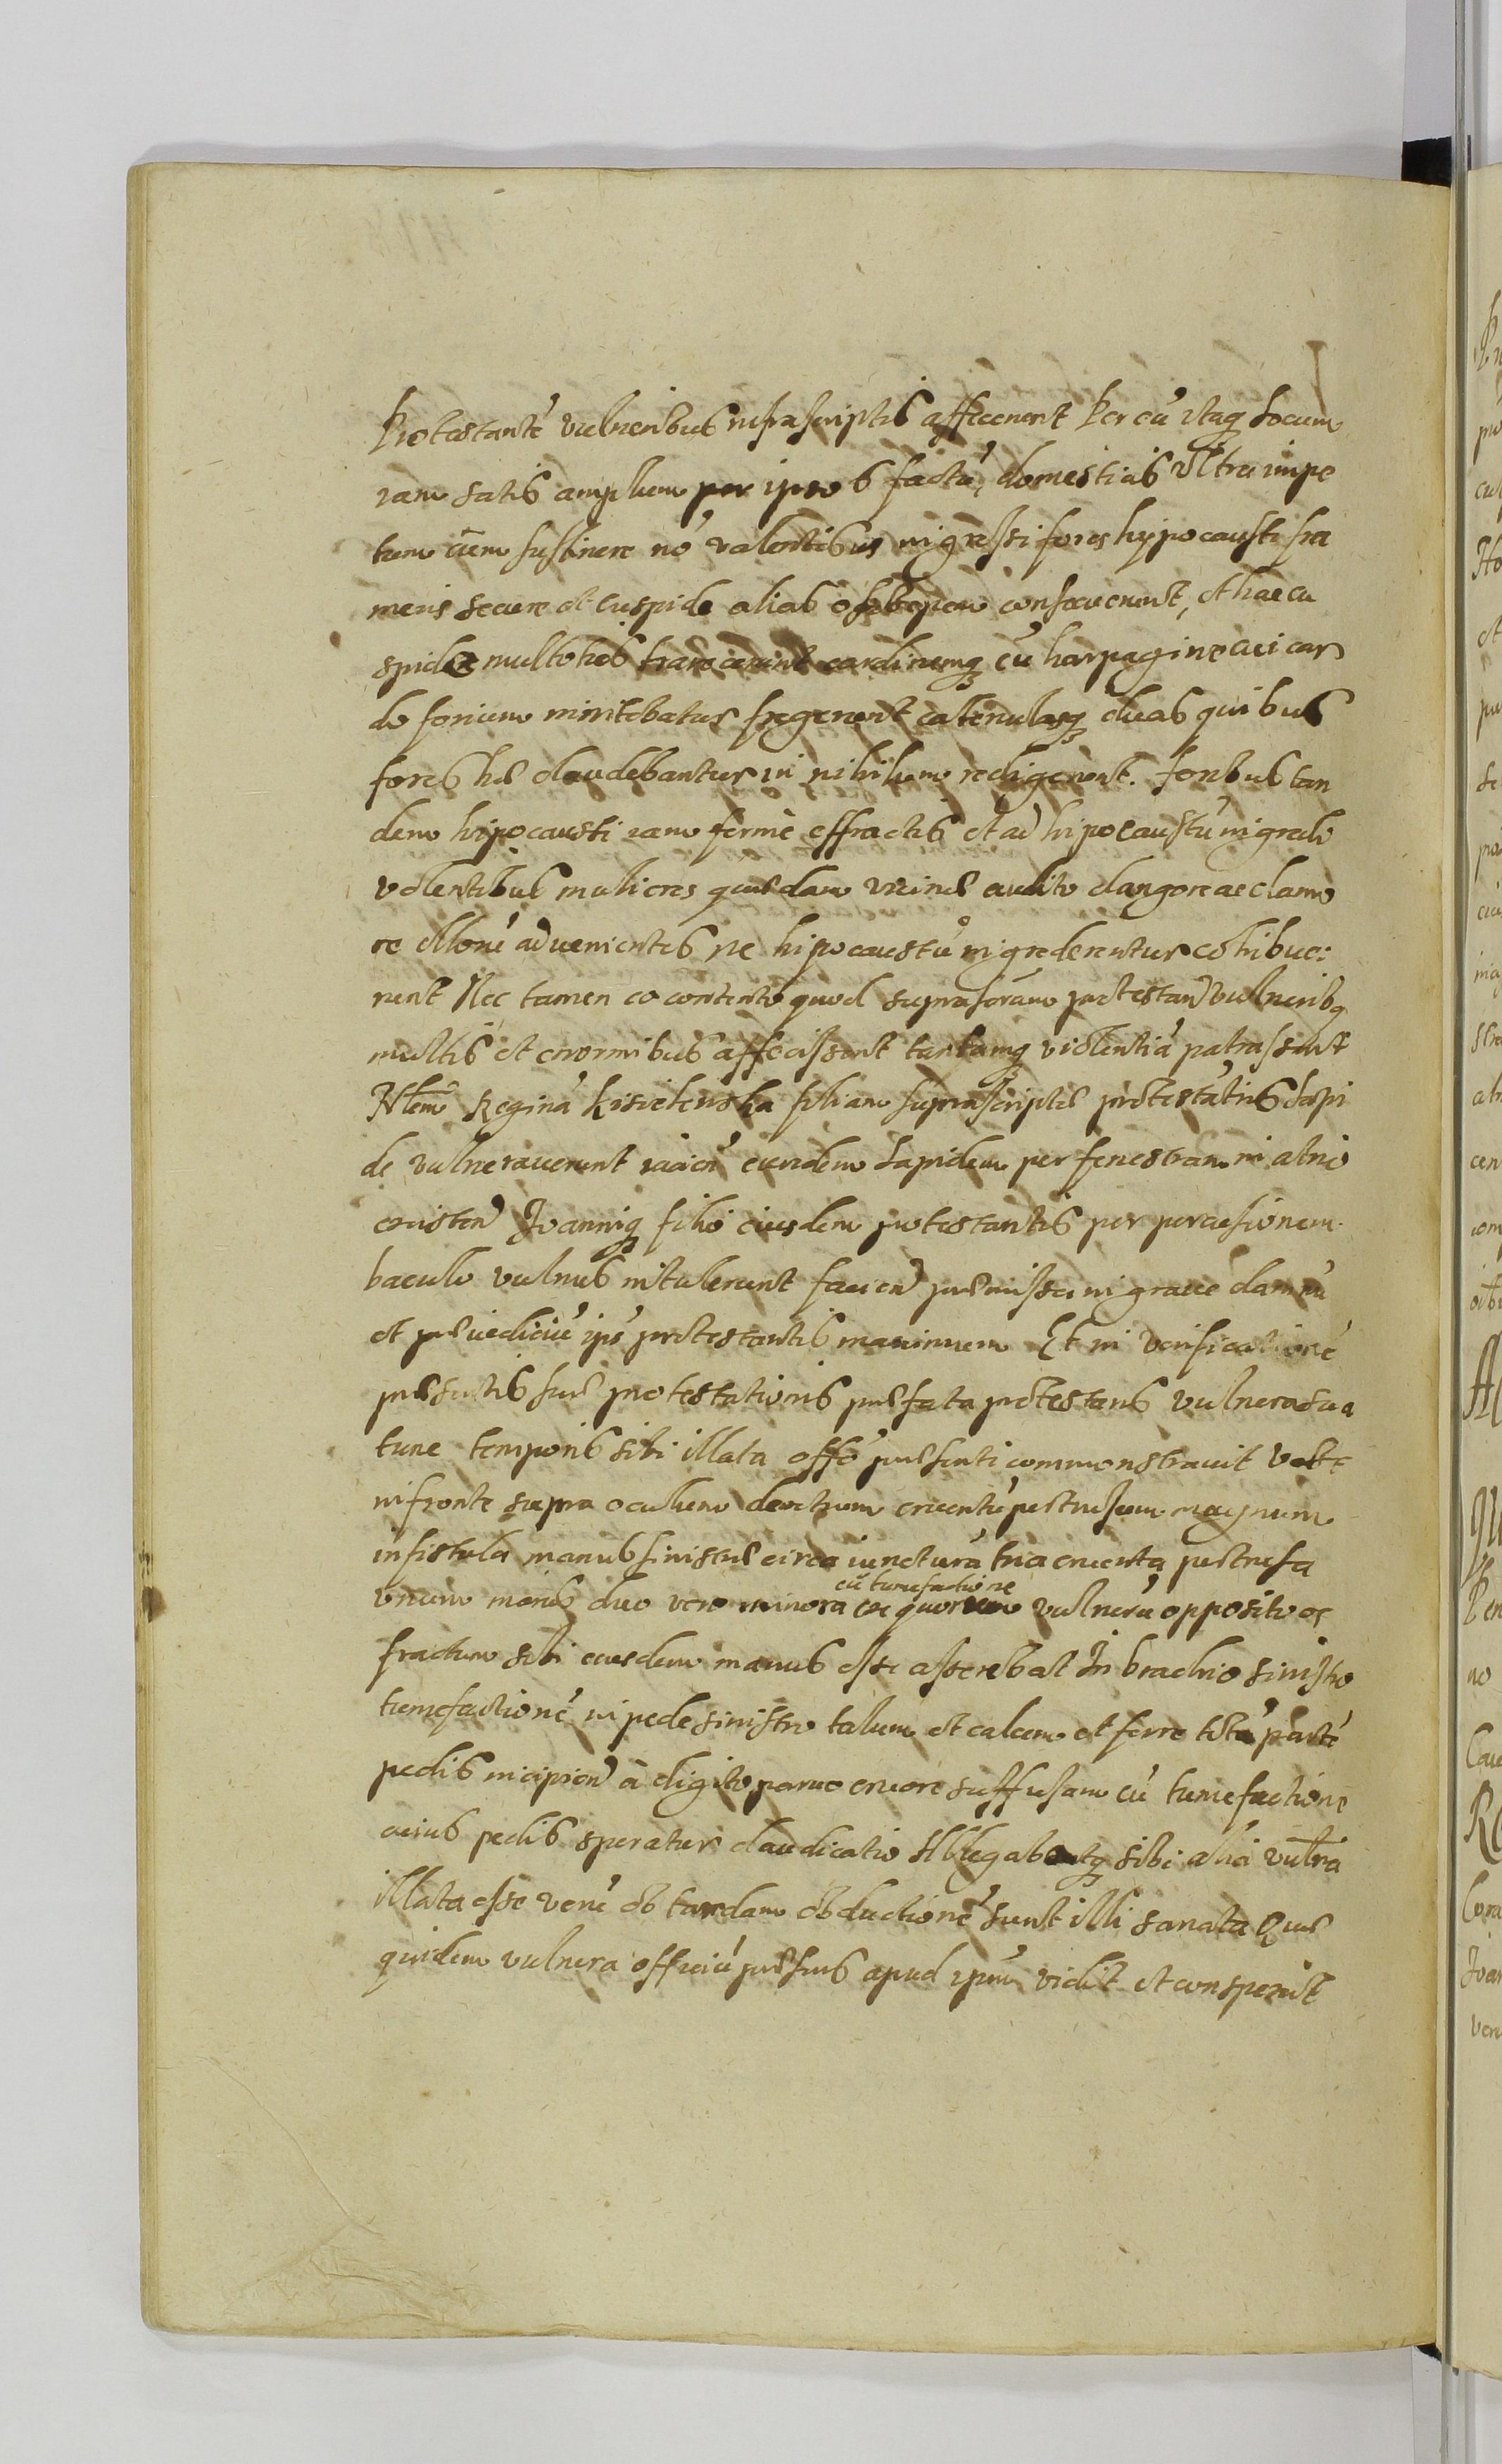 Protestantē vulneribus infrascriptis affecerunt Per eū itaq locum
iam satis amplum per ipsos factū, domesticis ultra impe
tum eum sustinere nō valentibus ingressi fores hypocausti fra
meis secure et cuspide alias consecuerunt, et hae cu
spide multoties cardinemq cū harpagine cui car
do forium innitebatur fregerunt catenulasq duas quibus
fores hae claudebantur in nihilum redigerunt. foribus tan
dem hipocausti iam fermè effractis et ad hipocaustū ingredi
volentibus mulieres quaedam vicinae audito clangore ac clamo
re illorū advenientes ne hipocaustū ingrederentur cohibue:
runt Nec tamen eo contenti quod supra foram protestan vulneribq
multis et enormibus affecissent tantamq violentiā patrassent
Nlem Reginā Kisielenska filiam suprascriptae protestātis lapi
de vulneraverunt iacien eundem lapidem per fenestram in atrio
existen Joanniq filio eiusdem protestantis per percusionem
baculo vulnus intulerunt facien praemissa in graue damnū
et praeiudiciū ips protestantis maximum Et in verificationē
praesentis suae protestationis praefata protestans vulnera sua
tunc temporis sibi illata offo praesenti commonstrauit
in fronte supra oculum dextrum cruentū pertusum magnum
in fistula manus sinistrae circa iuncturā tria cruenta pertusa
unum maius duo vero minora cū tumefactione ex quorum vulnerū opposito os
fractum sibi eiusdem manus esse asserebat In brachio sinistro
tumefactionē in pede sinistro talum et calcem et ferre totā partē
pedis incipien à digito paruo cruore suffusam cū tumefactione
cuius pedis speratur claudicatio Allegabatq sibi alia vulnra
illata esse verū ob tardam obductionē sunt illi sanata Quae
quidem vulnera officiū praesens apud ipm vidit et conspexit